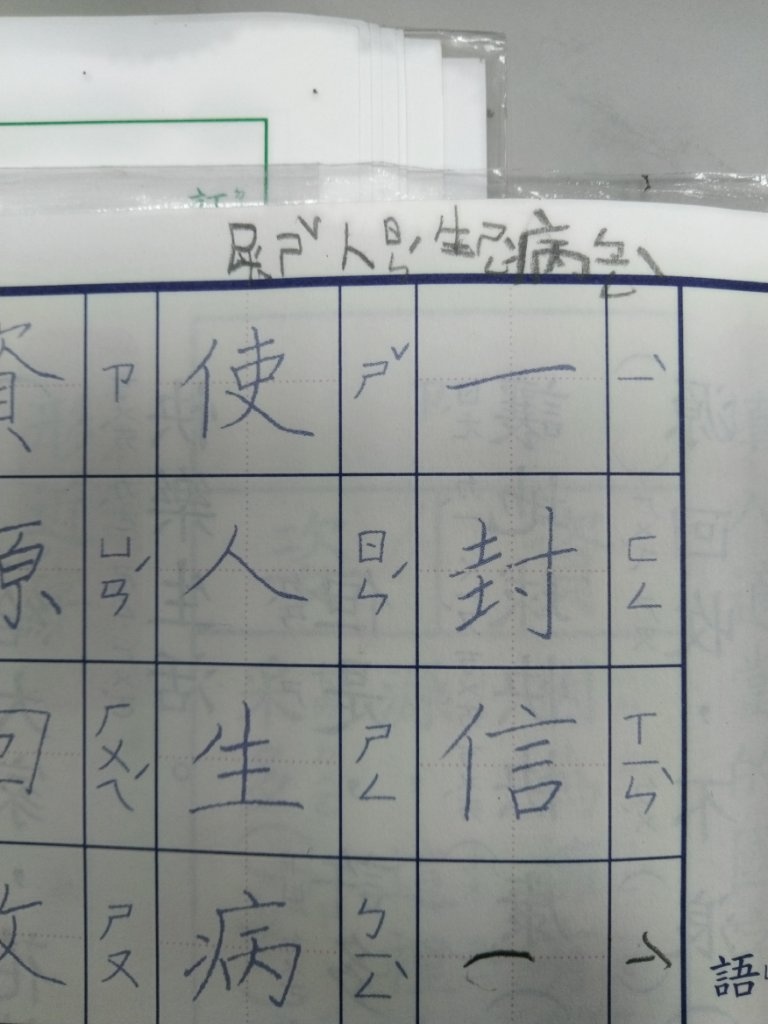 屎ㄕˇ人ㄖㄣˊ生ㄕㄥ病ㄅㄧㄥˋ
語
一ㄧˋ封ㄈㄥ信ㄒㄧㄣˋ一ㄧˋ
使ㄕˇ人ㄖㄣˊ生ㄕㄥ病ㄅㄧㄥˋ
資ㄗ源ㄩㄢˊ回ㄏㄨㄟˊ收ㄕㄡ